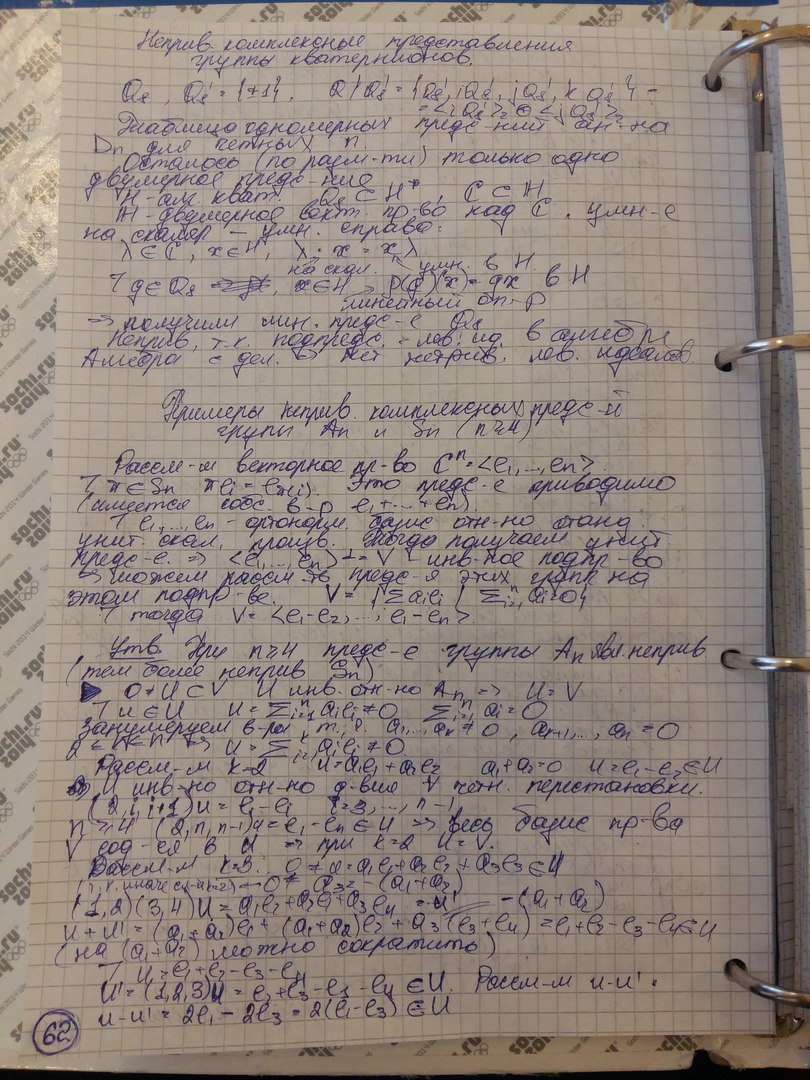 Неприв. комплексные представления
группы кватернионов.
Q₈, Q₈' = {±1}, Q₈/Q₈' = {Q₈', iQ₈', jQ₈', kQ₈'} =
= <iQ₈'>₂ ⊕ <jQ₈'>₂
Таблица одномерных предс-ний ан-на
Dn для четных n.
Осталось (по разм-ти) только одно
двумерное предс-ние
H-алг. кват. Q₈ ⊂ H*, C ⊂ H
H-двумерное вект. пр-во над C. умн-е
на скаляр – умн. справа.
λ ∈ C, x ∈ H, λ · x = x λ
на скал. умн. в H
g ∈ Q₈, x ∈ H, ρ(g)(x) = gx в H
линейный оп-р
=> получили лин. предс-е Q₈
Неприв, т.к. подпредс. - лев. ид. в алгебре
Алгебра с дел. => нет нетрив. лев. идеалов
Примеры неприв. комплексных предс-й
группы An и Sn (n≥4)
Рассм-м векторное пр-во Cⁿ = <e₁,...,en>.
π ∈ Sn πei = eπ(i). Это предс-е приводимо
(имеется собс. в-р e₁+...+en)
e₁,...,en - ортонорм. базис отн-но станд.
унит. скал. произв. Тогда получаем унит.
предс-е. => <e₁,...,en>⊥ = V - инв-ное подпр-во
=> можем рассм-ть предс-я этих групп на
этом подпр-ве. V = {Σaiei | Σⁿi=1 ai=0}
тогда V = <e₁-e₂,...,e₁-en>.
Утв. При n≥4 предс-е группы An явл. неприв
(тем более неприв Sn)
0≠U⊂V U инв. отн-но An => U = V
u ∈ U u = Σⁿi=1 aiei ≠ 0 Σⁿi=1 ai = 0
Занумеруем в-ры т. ч. a₁,...,ak ≠ 0, ak+1,...,an = 0
2 ≤ k ≤ n => u = Σi=1 aiei ≠ 0
Рассм-м k=2 u = a₁e₁+a₂e₂ a₁+a₂=0 u = e₁-e₂ ∈ U
U инв-но отн-но д-вия ∀ четн. перестановки.
(2,i,i+1)u = e₁-ei i=3,...,n-1
n≥4 (2,n,n-1)u = e₁-en ∈ U => весь базис пр-ва
V сод-ся в U => при k=2 U=V.
Рассм-м k=3. 0≠u=a₁e₁+a₂e₂+a₃e₃ ∈ U
(т.к. иначе сл-й k=2) ← 0≠ a₃=-(a₁+a₂)
(1,2)(3,4)u = a₁e₂+a₂e₁+a₃e₄ = u' -(a₁+a₂)
u+u' = (a₁+a₂)e₁+(a₁+a₂)e₂+a₃(e₃+e₄) = e₁+e₂-e₃-e₄ ∈ U
(на (a₁+a₂) можно сократить)
u = e₁+e₂-e₃-e₄
u' = (1,2,3)u = e₂+e₃-e₁-e₄ ∈ U. Рассм-м u-u'.
u-u' = 2e₁-2e₃ = 2(e₁-e₃) ∈ U
62
sochi.ru
2014